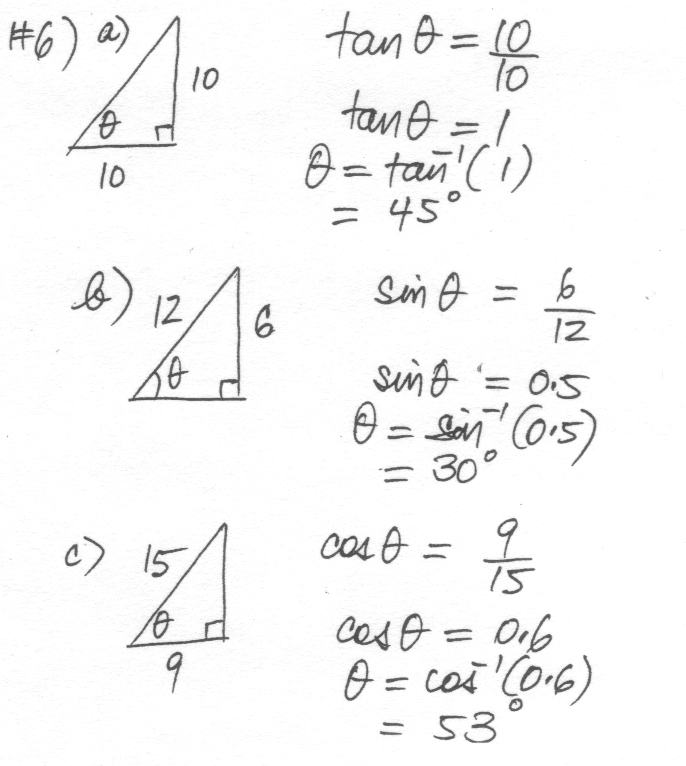 #6) a)
10
θ
10
tan θ = 10/10
tan θ = 1
θ = tan⁻¹(1)
= 45°
b)
12
6
θ
sin θ = 6/12
sin θ = 0.5
θ = sin⁻¹(0.5)
= 30°
c)
15
θ
9
cos θ = 9/15
cos θ = 0.6
θ = cos⁻¹(0.6)
= 53°